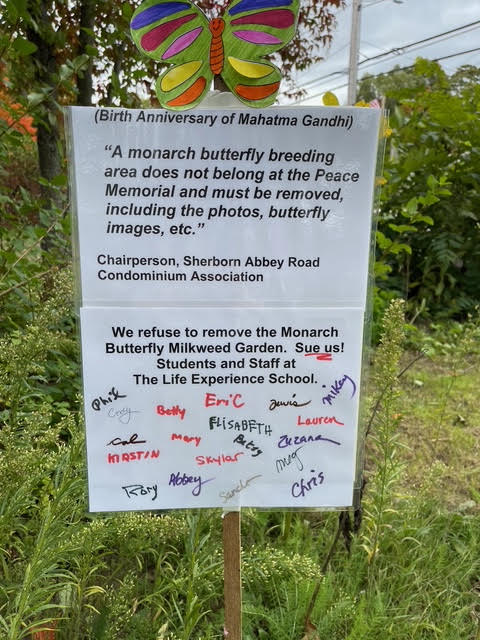 (Birth Anniversary of Mahatma Gandhi)
“A monarch butterfly breeding
area does not belong at the Peace
Memorial and must be removed,
including the photos, butterfly
images, etc.”
Chairperson, Sherborn Abbey Road
Condominium Association
We refuse to remove the Monarch
Butterfly Milkweed Garden. Sue us!
Students and Staff at
The Life Experience School.
Phil Cindy Betty Eric Lewis Mikey
ELISABETH Lauren
Cal Mary Betsy Zuzana
KIRSTIN Skylar Meg
Rory Abbey Sandra Chris